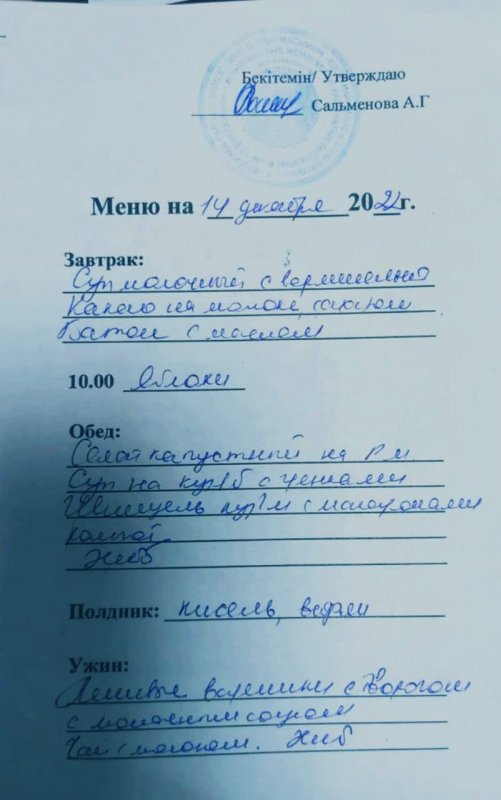 Бекітемін/ Утверждаю
Сальменова А.Г
Меню на 14 декабря 2021г.
Завтрак:
Суп молочный с вермишелью
Какао на молоке, сахаром
Батон с маслом
10.00 Яблоки
Обед:
Салат капустный на р м
Суп на кур/б с гренками
Шницель кур/м с макаронами
Компот
Хлеб
Полдник: кисель, вафли
Ужин:
Ленивые вареники с творогом
с молочным соусом
Чай с молоком. Хлеб